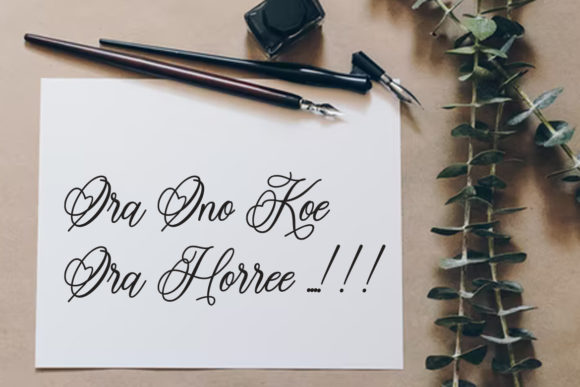 Ora Ono Koe
Ora Horree ....!!!